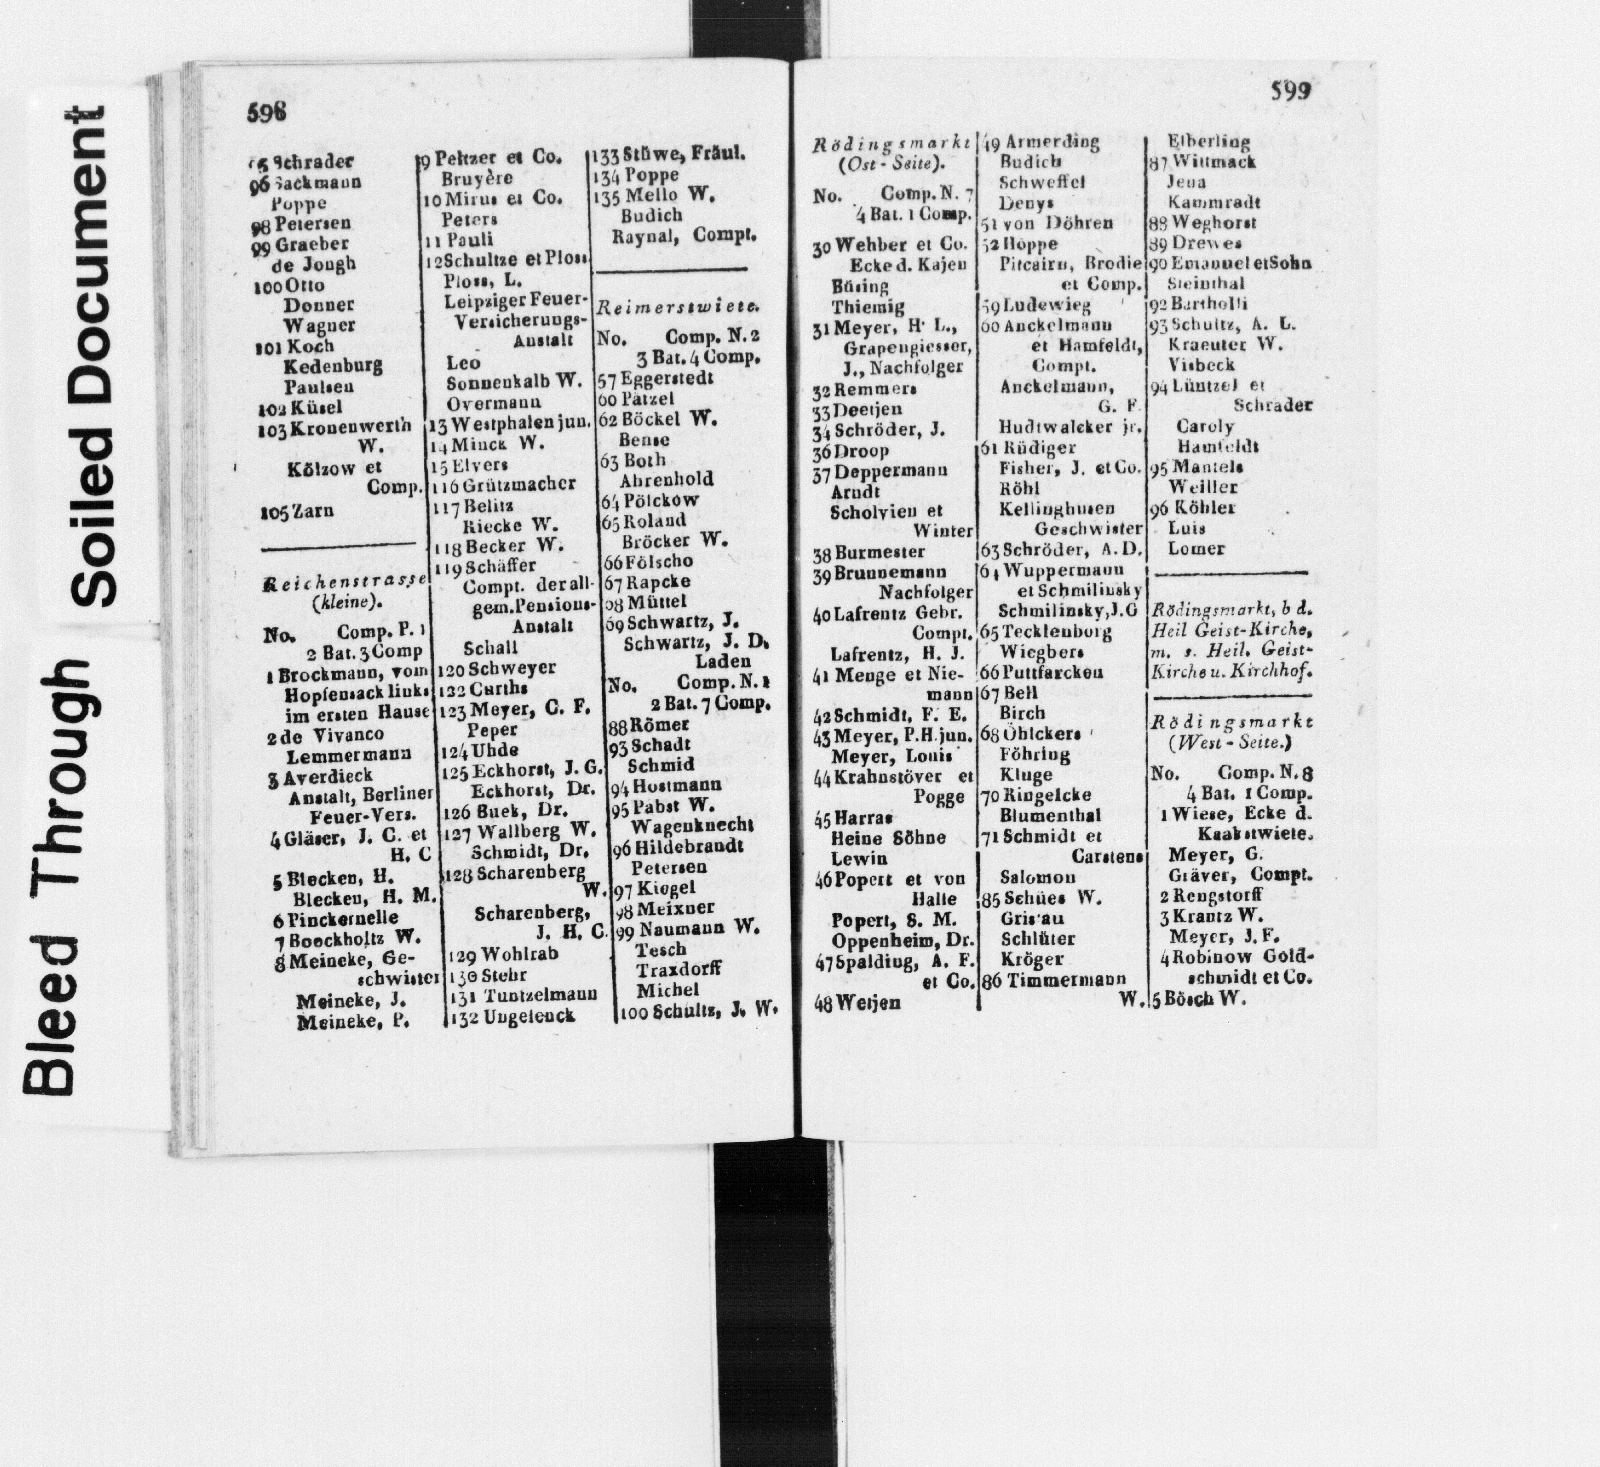 Bleed Through Soiled Document
598
95 Schrader
96 Sackmann
Poppe
98 Petersen
99 Graeber
de Jongh
100 Otto
Donner
Wagner
101 Koch
Kedenburg
Paulsen
102 Küsel
103 Kronenwerth
W.
Kölzow et
Comp.
105 Zarn
Reichenstrasse
(kleine).
No. Comp. P. 1
2 Bat. 3 Comp
1 Brockmann, vom
Hopfensack links
im ersten Hause
2 de Vivanco
Lemmermann
3 Averdieck
Anstalt, Berliner
Feuer-Vers.
4 Gläser, J. C. et
H. C
5 Blecken, H.
Blecken, H. M.
6 Pinckernelle
7 Boockholtz W.
8 Meineke, Ge-
schwister
Meineke, J.
Meineke, P.
9 Peltzer et Co.
Bruyère
10 Mirus et Co.
Peters
11 Pauli
12 Schultze et Ploss
Ploss, L.
Leipziger Feuer-
Versicherungs-
Anstalt
Leo
Sonnenkalb W.
Overmann
13 Westphalen jun.
14 Minck W.
15 Elvers
116 Grützmacher
117 Belitz
Riecke W.
118 Becker W.
119 Schäffer
Compt. der all-
gem. Pensions-
Anstalt
Schall
120 Schweyer
122 Curths
123 Meyer, C. F.
Peper
124 Uhde
125 Eckhorst, J. G.
Eckhorst, Dr.
126 Buek, Dr.
127 Wallberg W.
Schmidt, Dr.
128 Scharenberg
W.
Scharenberg,
J. H. C.
129 Wohlrab
130 Stehr
131 Tuntzelmann
132 Ungelenck
133 Stüwe, Fräul.
134 Poppe
135 Mello W.
Budich
Raynal, Compt.
Reimerstwiete.
No. Comp. N. 2
3 Bat. 4 Comp.
57 Eggerstedt
60 Pätzel
62 Böckel W.
Bense
63 Both
Ahrenhold
64 Pölckow
65 Roland
Bröcker W.
66 Fölscho
67 Rapcke
68 Müttel
69 Schwartz, J.
Schwartz, J. D.
Laden
No. Comp. N. 1
2 Bat. 7 Comp.
88 Römer
93 Schadt
Schmid
94 Hostmann
95 Pabst W.
Wagenknecht
96 Hildebrandt
Petersen
97 Kiegel
98 Meixner
99 Naumann W.
Tesch
Traxdorff
Michel
100 Schultz, J. W.
599
Rödingsmarkt
(Ost-Seite).
No. Comp. N. 7
4 Bat. 1 Comp.
30 Wehber et Co.
Ecke d. Kajen
Büsing
Thiemig
31 Meyer, H. L.,
Grapengiesser,
J., Nachfolger
32 Remmers
33 Deetjen
34 Schröder, J.
36 Droop
37 Deppermann
Arndt
Scholvien et
Winter
38 Burmester
39 Brunnemann
Nachfolger
40 Lafrentz Gebr.
Compt.
Lafrentz, H. J.
41 Menge et Nie-
mann
42 Schmidt, F. E.
43 Meyer, P. H. jun.
Meyer, Louis
44 Krahnstöver et
Pogge
45 Harras
Heine Söhne
Lewin
46 Popert et von
Halle
Popert, S. M.
Oppenheim, Dr.
47 Spalding, A. F.
et Co.
48 Wetjen
49 Armerding
Budich
Schweffel
Denys
51 von Döhren
52 Hoppe
Pitcairn, Brodie
et Comp.
59 Ludewieg
60 Anckelmann
et Hamfeldt,
Compt.
Anckelmann,
G. F.
Hudtwalcker jr.
61 Rüdiger
Fisher, J. et Co.
Röhl
Kellinghusen
Geschwister
63 Schröder, A. D.
64 Wuppermann
et Schmilinsky
Schmilinsky, J. G
65 Tecklenborg
Wiegbers
66 Puttfarcken
67 Bell
Birch
68 Öhlckers
Föhring
Kluge
70 Ringelcke
Blumenthal
71 Schmidt et
Carstens
Salomon
85 Schües W.
Grisau
Schlüter
Kröger
86 Timmermann
W.
Elberling
87 Wittmack
Jena
Kammradt
88 Weghorst
89 Drewes
90 Emanuel et Sohn
Steinthal
92 Bartholli
93 Schultz, A. L.
Kraeuter W.
Visbeck
94 Lüntzel et
Schrader
Caroly
Hamfeldt
95 Mantels
Weiller
96 Köhler
Luis
Lomer
Rödingsmarkt, b d.
Heil Geist-Kirche,
m. s. Heil. Geist-
Kirche u. Kirchhof.
Rödingsmarkt
(West-Seite.)
No. Comp. N. 8
4 Bat. 1 Comp.
1 Wiese, Ecke d.
Kaakstwiete.
Meyer, G.
Gläver, Compt.
2 Rengstorff
3 Krantz W.
Meyer, J. F.
4 Robinow Gold-
schmidt et Co.
5 Bösch W.